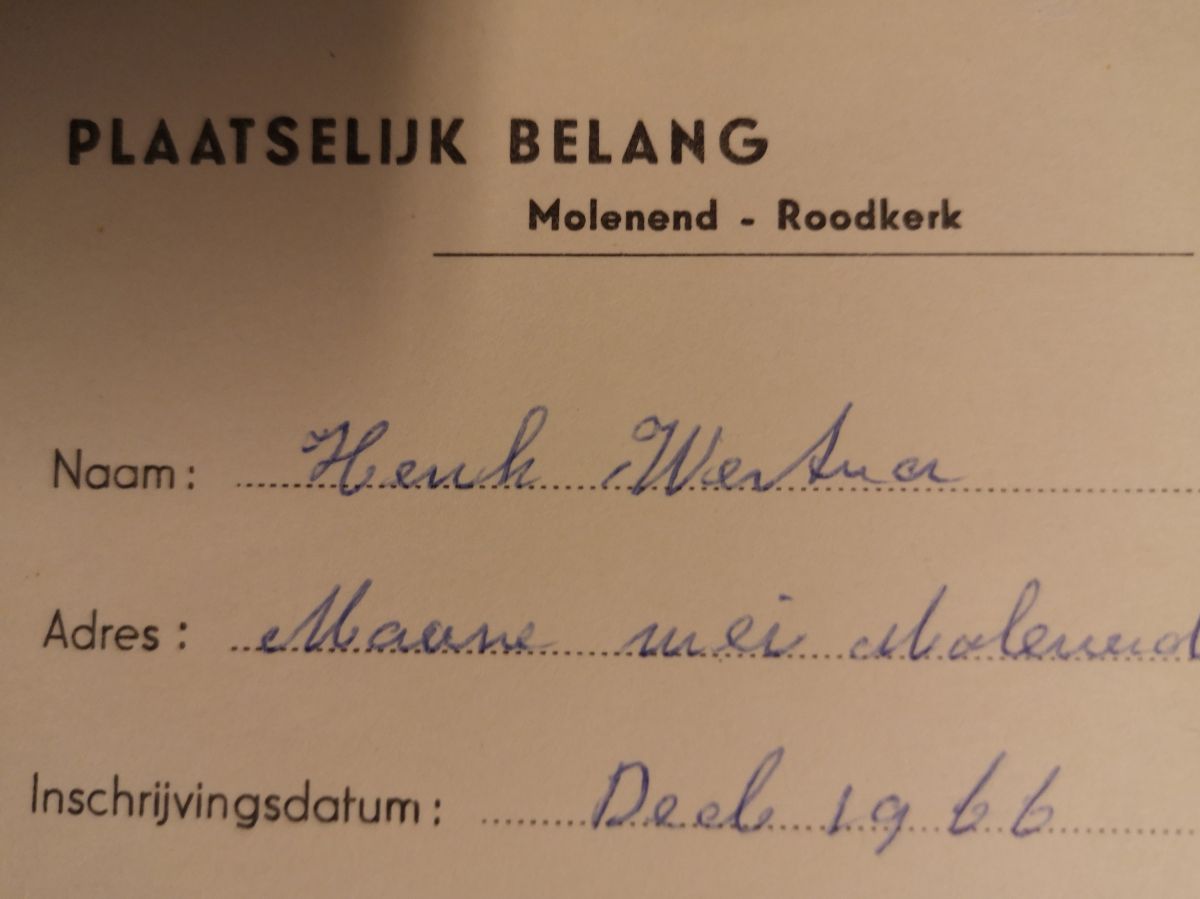 PLAATSELIJK BELANG
Molenend - Roodkerk
Naam: Henk
Adres: Molenend
Inschrijvingsdatum: 1966